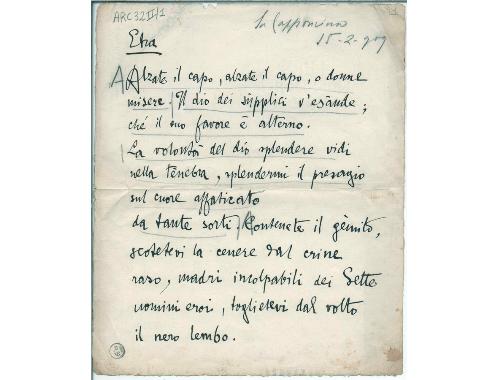 ARC32II/1
La Capponcina
15-2-909
Etra
Alzate il capo, alzate il capo, o donne
misere. Il dio dei supplici v'esaude;
ché il suo favore è alterno.
La volontà del dio splendere vidi
nella tenebra, splendermi il presagio
sul cuore affaticato
da tante sorti. Contenete il gèmito,
scotetevi la cenere dal crine
raso, madri incolpabili dei Sette
uomini eroi, toglietevi dal volto
il nero lembo.